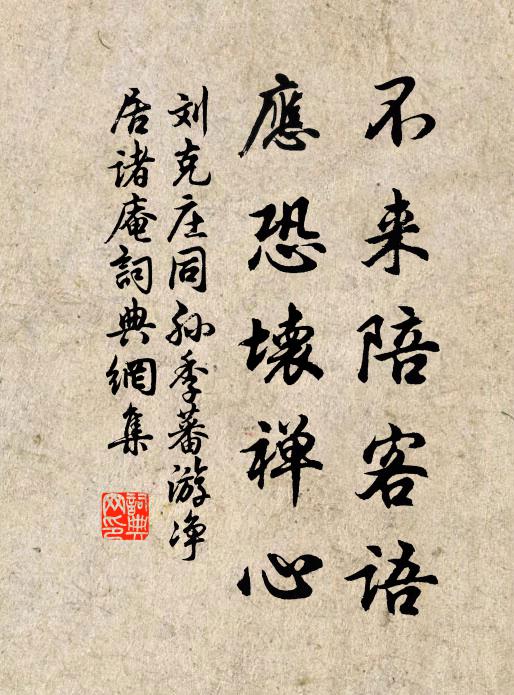 不来陪客语
應恐壊禅心
刘克庄同孙季蕃游净
居诸庵詞典網集
詞典
网印